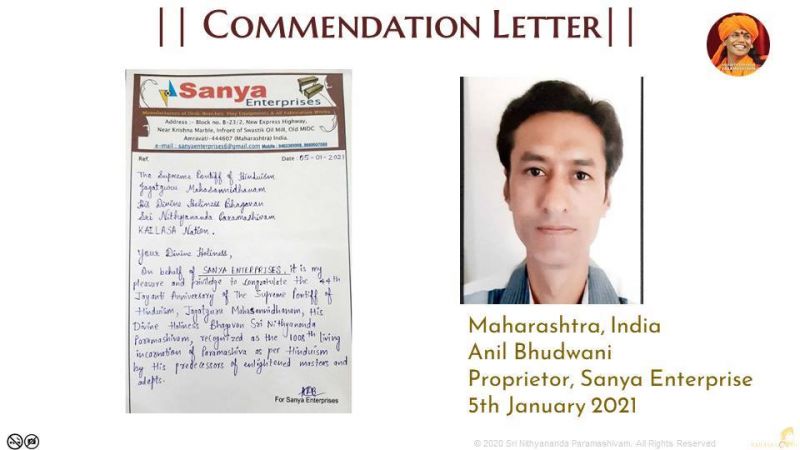 || COMMENDATION LETTER||
Sanya
Enterprises
Manufacturers of Desk, Benches, Play Equipments & All Fabrication Works
Address :- Block no. B-23/2, New Express Highway,
Near Krishna Marble, Infront of Swastik Oil Mill, Old MIDC
Amravati-444607 (Maharashtra) India.
e-mail : sanyaenterprises6@gmail.com Mobile :
Ref. Date : 05-01-2021
The Supreme Pontiff of Hinduism
Jagatguru Mahasannidhanam
His Divine Holiness Bhagavan
Sri Nithyananda Paramashivam
KAILASA Nation.
Your Divine Holiness,
On behalf of SANYA ENTERPRISES, it is my
pleasure and privilege to congratulate the 44th
Jayanti Anniversary of The Supreme Pontiff of
Hinduism, Jagatguru Mahasannidhanam, His
Divine Holiness Bhagavan Sri Nithyananda
Paramashivam, recognized as the 1008th living
incarnation of Paramashiva as per Hinduism
by His predecessors of enlightened masters and
adepts.
For Sanya Enterprises
Maharashtra, India
Anil Bhudwani
Proprietor, Sanya Enterprise
5th January 2021
© 2020 Sri Nithyananda Paramashivam. All Rights Reserved